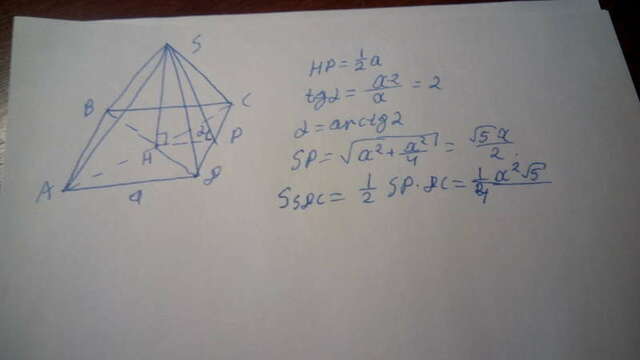 S
B
C
2
H
P
A
д
a
HP = 1/2 a
tgα = a2/a = 2
α = arctg2
SP = √(a² + a²/4) = √5a/2.
Ssдc = 1/2 SP·дC = 1/4 a²√5